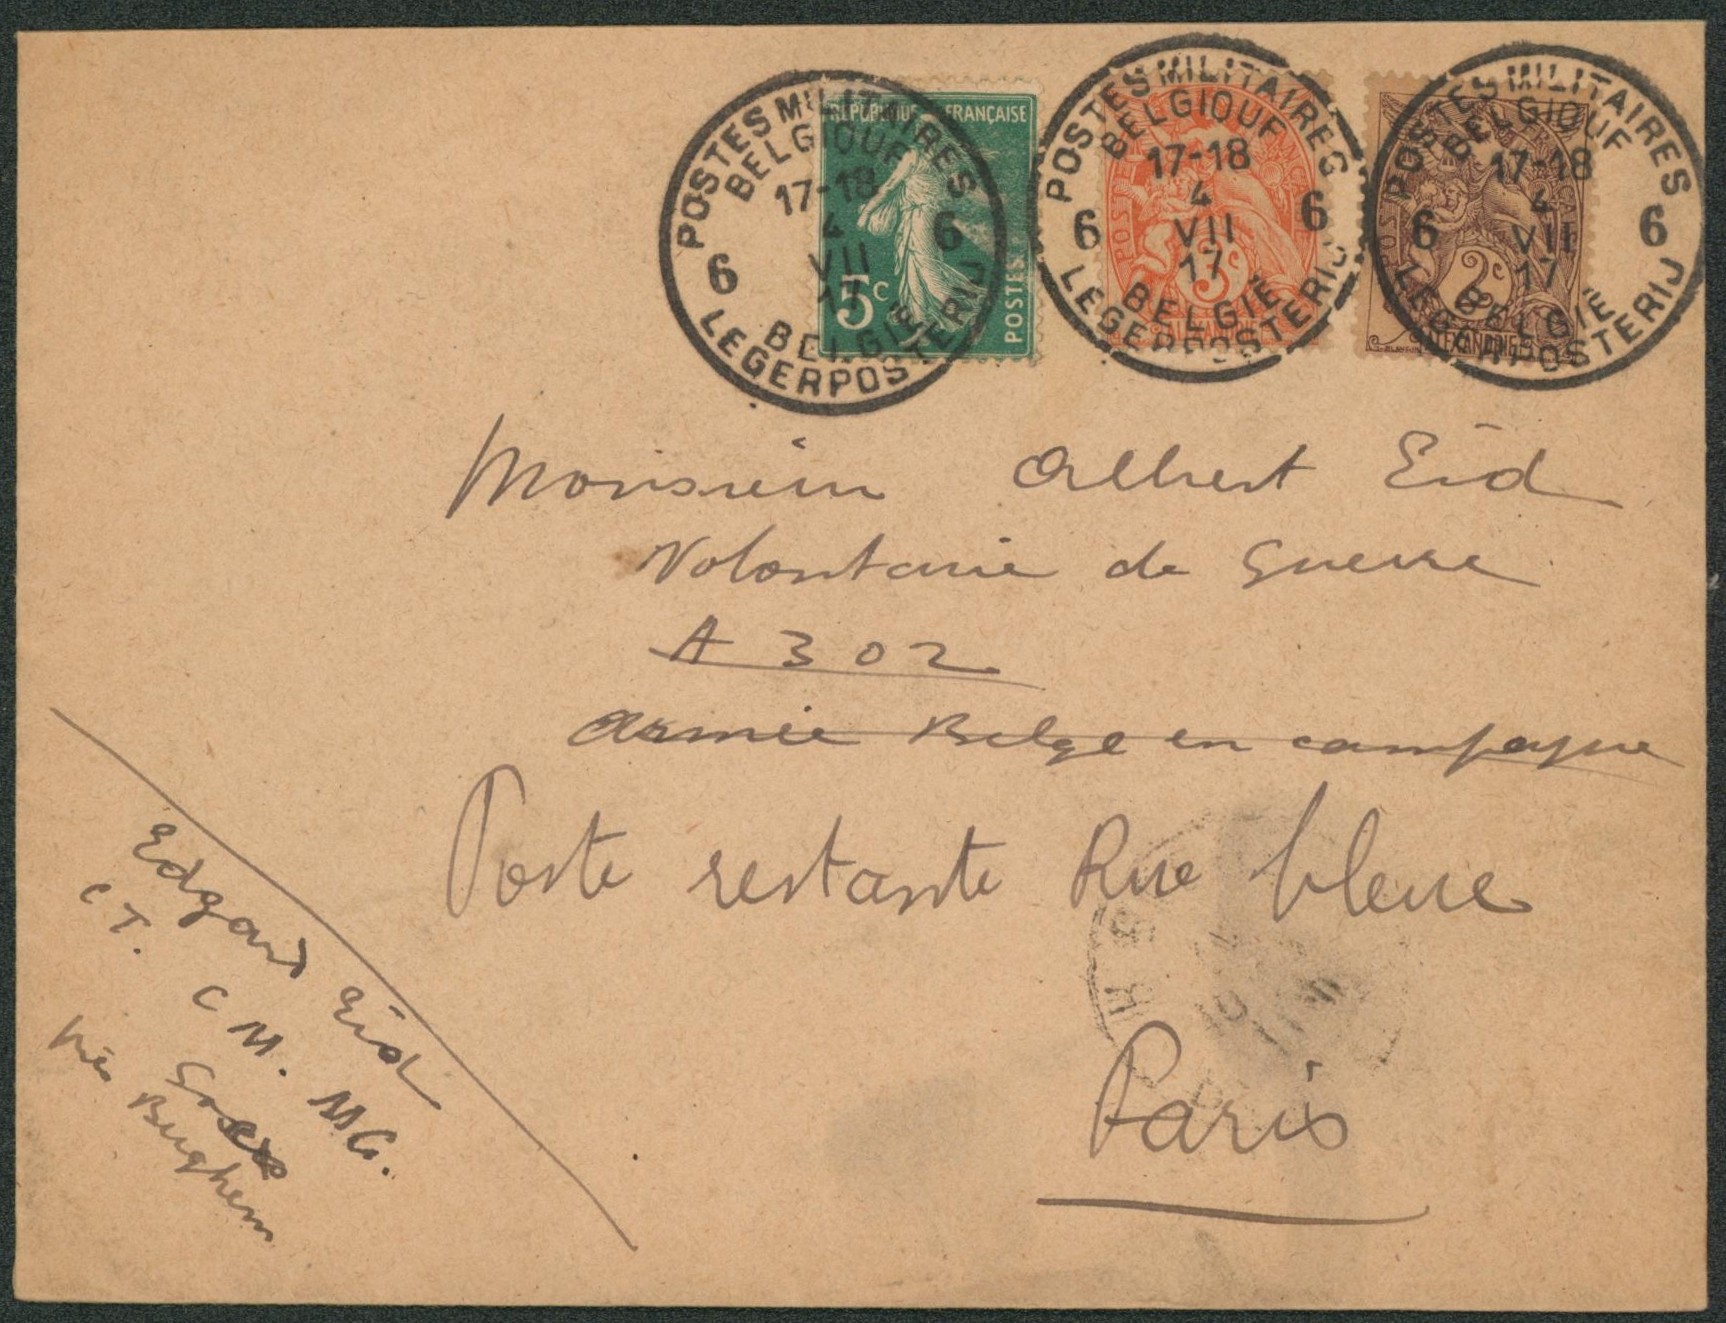 POSTES MILITAIRES
BELGIQUE
17-18
4
VII
17
6 6
BELGIË
LEGERPOSTERIJ
RÉPUBLIQUE FRANÇAISE
5c
POSTES
POSTES MILITAIRES
BELGIQUE
17-18
4
VII
17
6 6
BELGIË
LEGERPOSTERIJ
POSTE
3c
ALEXANDRIE
POSTES MILITAIRES
BELGIQUE
17-18
4
VII
17
6 6
BELGIË
LEGERPOSTERIJ
POSTE
2c
ALEXANDRIE
Monsieur Albert Eid
Volontaire de Guerre
A 302
Armée Belge en campagne
Poste restante Rue bleue
Paris
Edgard Eid
C T. C M. MG.
près
Burghem